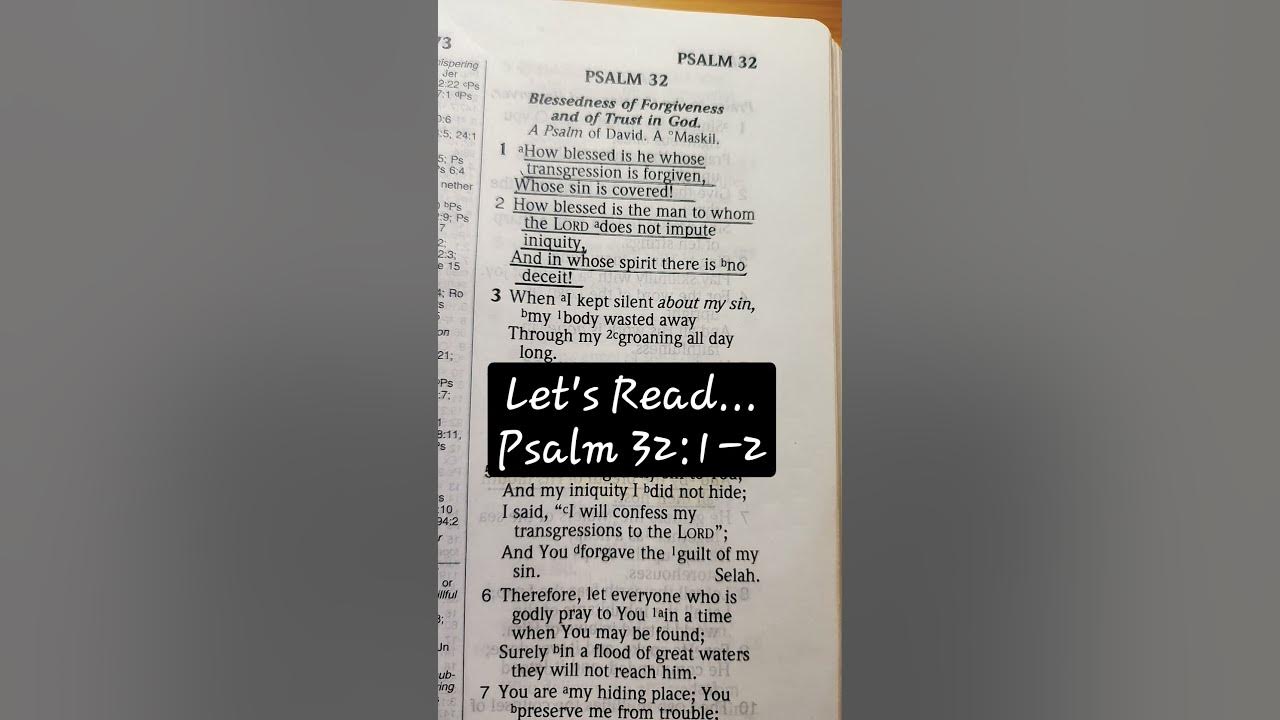 73
PSALM 32
ispering
Jer
2:22 ᶜPs
7:1 ᵈPs
0:6
:5, 24:1
5; Ps
's 6:4
nether
ᵇPs
2:9; Ps
7
2;
2:3;
e 15
4; Ro
s
on
21;
Ps
:7;
1
8:11,
's
s
:10
94:2
r
or
illful
3;
Jn
ub-
ring
PSALM 32
Blessedness of Forgiveness
and of Trust in God.
A Psalm of David. A °Maskil.
1 ᵃHow blessed is he whose
transgression is forgiven,
Whose sin is covered!
2 How blessed is the man to whom
the LORD ᵃdoes not impute
iniquity,
And in whose spirit there is ᵇno
deceit!
3 When ᵃI kept silent about my sin,
ᵇmy ¹body wasted away
Through my ²ᶜgroaning all day
long.
Let's Read...
Psalm 32:1-2
And my iniquity I ᵇdid not hide;
I said, “ᶜI will confess my
transgressions to the LORD”;
And You ᵈforgave the ¹guilt of my
sin. Selah.
6 Therefore, let everyone who is
godly pray to You ¹ᵃin a time
when You may be found;
Surely ᵇin a flood of great waters
they will not reach him.
7 You are ᵃmy hiding place; You
ᵇpreserve me from trouble;